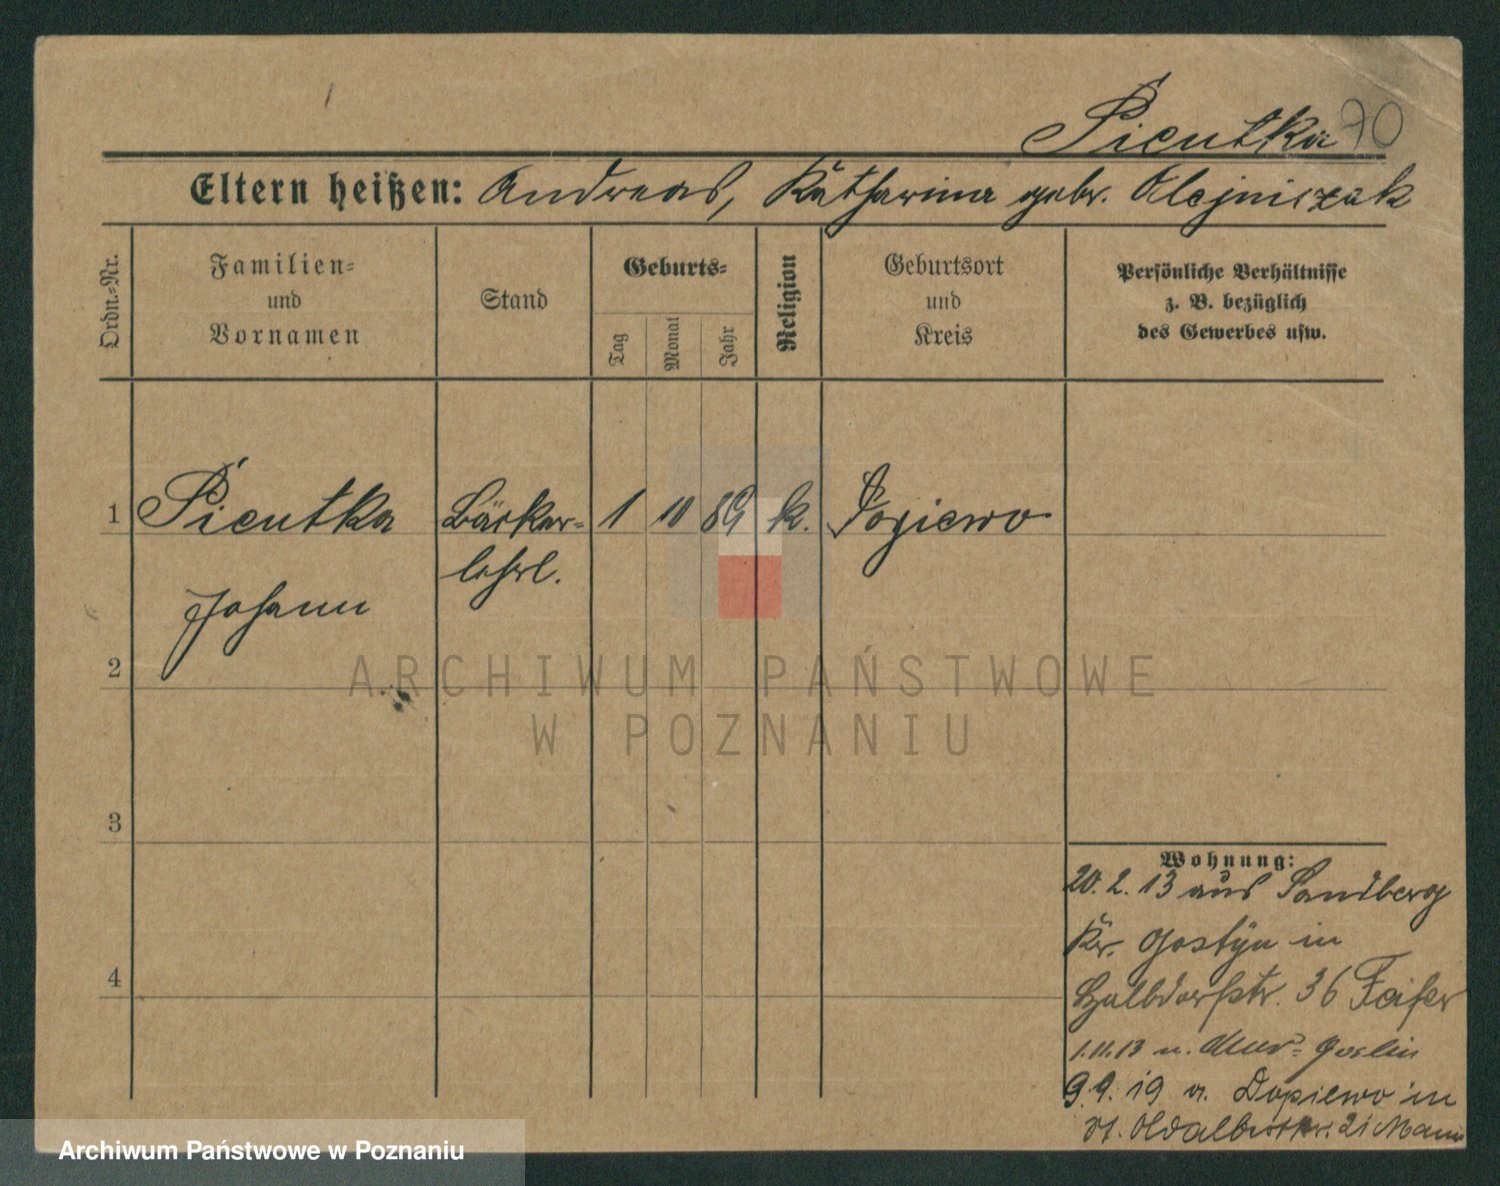 Pieutka 70
Eltern heißen: Andreas, Katharina gebr. Olejniczak
Ordn.-Nr.
Familien-
und
Vornamen
Stand
Geburts-
Tag
Monat
Jahr
Religion
Geburtsort
und
Kreis
Persönliche Verhältnisse
z. B. bezüglich
des Gewerbes usw.
1 Pieutka Bäcker- 1 10 89 k.
lehrl.
Johann
2
ARCHIWUM PAŃSTWOWE
W POZNANIU
3
Wohnung:
20. 2. 13 aus Sandberg
Kr. Gostyn in
4
36
1.11.13 n. Goslin
9.9.19 v. Dopiewo in
Archiwum Państwowe w Poznaniu